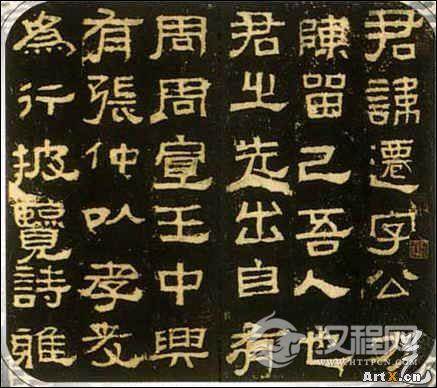 君諱遷字公方
陳留己吾人也
君之先出自有
周周宣王中興
有張仲以孝友
為行披覽詩雅
汉程网
HTTPCN.COM
ArtX.cn